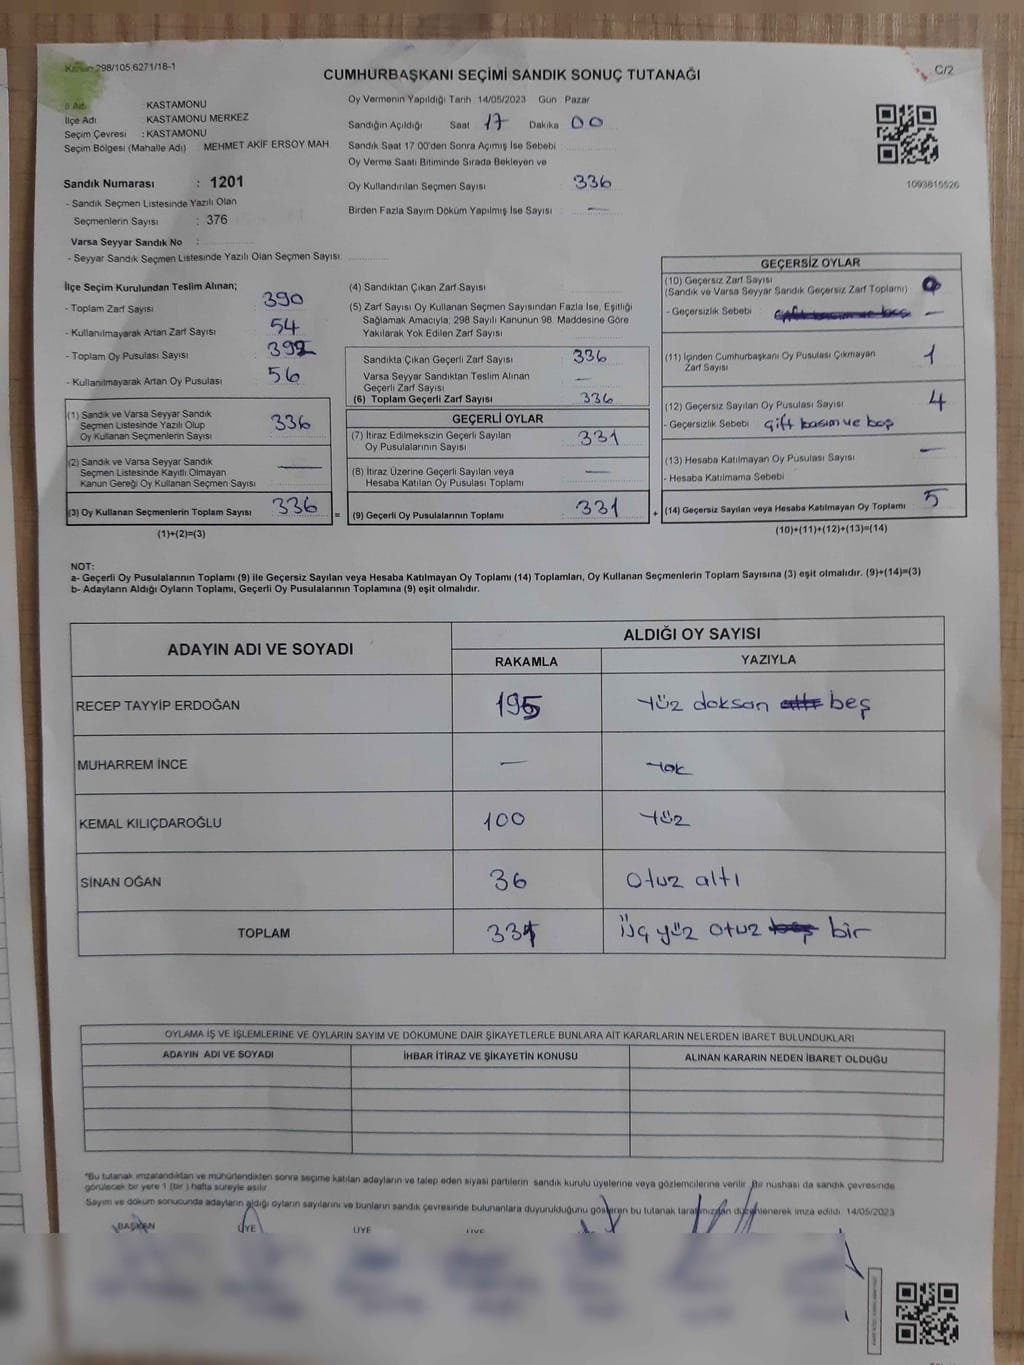 Kanun 298/105,6271/18-1
C/2
CUMHURBAŞKANI SEÇİMİ SANDIK SONUÇ TUTANAĞI
İl Adı KASTAMONU
İlçe Adı KASTAMONU MERKEZ
Seçim Çevresi : KASTAMONU
Seçim Bölgesi (Mahalle Adı) MEHMET AKİF ERSOY MAH
Sandık Numarası : 1201
- Sandık Seçmen Listesinde Yazılı Olan
Seçmenlerin Sayısı : 376
Varsa Seyyar Sandık No :
- Seyyar Sandık Seçmen Listesinde Yazılı Olan Seçmen Sayısı:
Oy Vermenin Yapıldığı Tarih 14/05/2023 Gün Pazar
Sandığın Açıldığı Saat 17 Dakika 00
Sandık Saat 17 00'den Sonra Açımış İse Sebebi
Oy Verme Saati Bitiminde Sırada Bekleyen ve
Oy Kullandırılan Seçmen Sayısı 336
Birden Fazla Sayım Döküm Yapılmış İse Sayısı —
1093615526
İlçe Seçim Kurulundan Teslim Alınan;
- Toplam Zarf Sayısı 390
- Kullanılmayarak Artan Zarf Sayısı 54
- Toplam Oy Pusulası Sayısı 392
- Kullanılmayarak Artan Oy Pusulası 56
(1) Sandık ve Varsa Seyyar Sandık
Seçmen Listesinde Yazılı Olup
Oy Kullanan Seçmenlerin Sayısı 336
(2) Sandık ve Varsa Seyyar Sandık
Seçmen Listesinde Kayıtlı Olmayan
Kanun Gereği Oy Kullanan Seçmen Sayısı —
(3) Oy Kullanan Seçmenlerin Toplam Sayısı 336
(1)+(2)=(3)
(4) Sandıktan Çıkan Zarf Sayısı
(5) Zarf Sayısı Oy Kullanan Seçmen Sayısından Fazla İse, Eşitliği
Sağlamak Amacıyla, 298 Sayılı Kanunun 98. Maddesine Göre
Yakılarak Yok Edilen Zarf Sayısı
Sandıkta Çıkan Geçerli Zarf Sayısı 336
Varsa Seyyar Sandıktan Teslim Alınan
Geçerli Zarf Sayısı —
(6) Toplam Geçerli Zarf Sayısı 336
GEÇERLİ OYLAR
(7) İtiraz Edilmeksizin Geçerli Sayılan
Oy Pusulalarının Sayısı 331
(8) İtiraz Üzerine Geçerli Sayılan veya
Hesaba Katılan Oy Pusulası Toplamı —
= (9) Geçerli Oy Pusulalarının Toplamı 331 +
GEÇERSİZ OYLAR
(10) Geçersiz Zarf Sayısı
(Sandık ve Varsa Seyyar Sandık Geçersiz Zarf Toplamı) 0
- Geçersizlik Sebebi çift basım ve boş —
(11) İçinden Cumhurbaşkanı Oy Pusulası Çıkmayan
Zarf Sayısı 1
(12) Geçersiz Sayılan Oy Pusulası Sayısı 4
- Geçersizlik Sebebi çift basım ve boş
(13) Hesaba Katılmayan Oy Pusulası Sayısı —
- Hesaba Katılmama Sebebi
(14) Geçersiz Sayılan veya Hesaba Katılmayan Oy Toplamı 5
(10)+(11)+(12)+(13)=(14)
NOT:
a- Geçerli Oy Pusulalarının Toplamı (9) ile Geçersiz Sayılan veya Hesaba Katılmayan Oy Toplamı (14) Toplamları, Oy Kullanan Seçmenlerin Toplam Sayısına (3) eşit olmalıdır. (9)+(14)=(3)
b- Adayların Aldığı Oyların Toplamı, Geçerli Oy Pusulalarının Toplamına (9) eşit olmalıdır.
ADAYIN ADI VE SOYADI
ALDIĞI OY SAYISI
RAKAMLA YAZIYLA
RECEP TAYYİP ERDOĞAN 195 Yüz doksan altı beş
MUHARREM İNCE — Yok
KEMAL KILIÇDAROĞLU 100 Yüz
SİNAN OĞAN 36 Otuz altı
TOPLAM 331 Üç yüz otuz beş bir
OYLAMA İŞ VE İŞLEMLERİNE VE OYLARIN SAYIM VE DÖKÜMÜNE DAİR ŞİKAYETLERLE BUNLARA AİT KARARLARIN NELERDEN İBARET BULUNDUKLARI
ADAYIN ADI VE SOYADI İHBAR İTİRAZ VE ŞİKAYETİN KONUSU ALINAN KARARIN NEDEN İBARET OLDUĞU
*Bu tutanak imzalandıktan ve mühürlendikten sonra seçime katılan adayların ve talep eden siyasi partilerin sandık kurulu üyelerine veya gözlemcilerine verilir. Bir nüshası da sandık çevresinde
görülecek bir yere 1 (bir) hafta süreyle asılır
Sayım ve döküm sonucunda adayların aldığı oyların sayılarını ve bunların sandık çevresinde bulunanlara duyurulduğunu gösteren bu tutanak tarafımızdan düzenlenerek imza edildi. 14/05/2023
BAŞKAN ÜYE ÜYE ÜYE